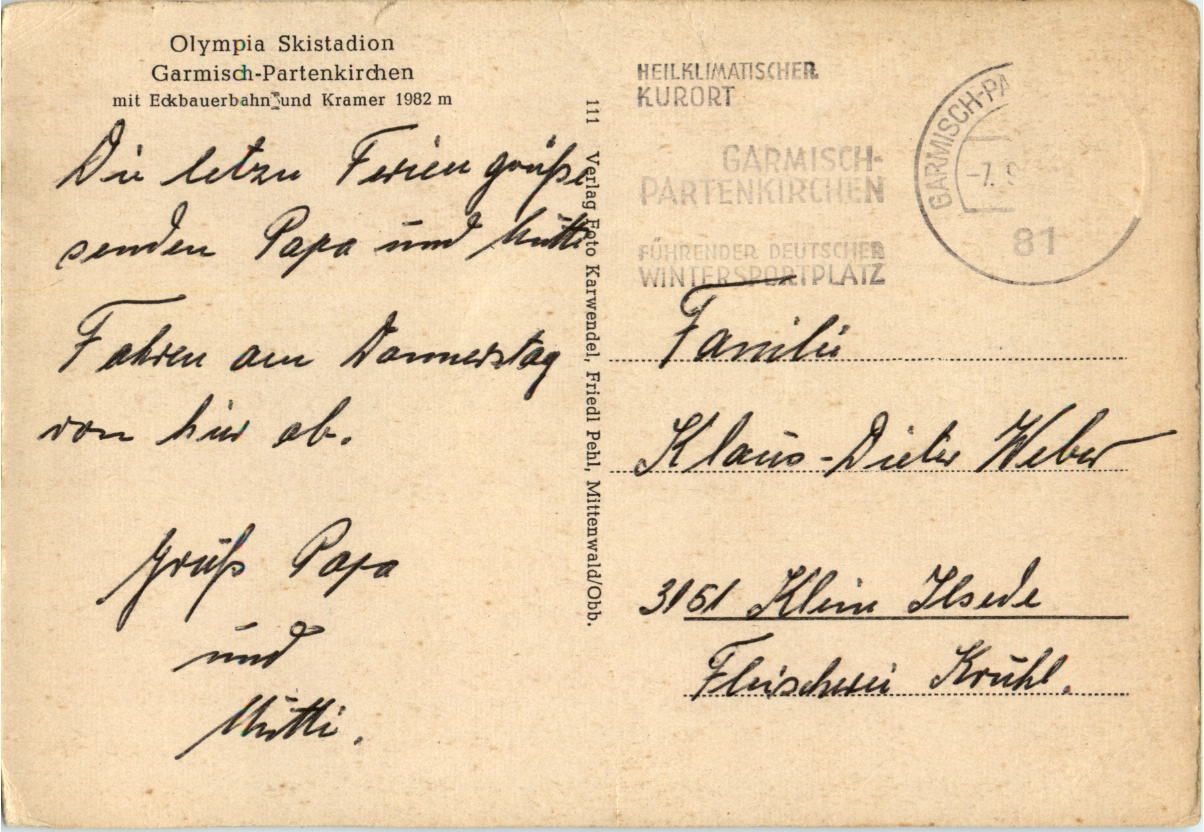 Olympia Skistadion
Garmisch-Partenkirchen
mit Eckbauerbahn und Kramer 1982 m
Die letzen Feriengrüße
senden Papa und Mutti
Fahren am Donnerstag
von hier ab.
Gruß Papa
und
Mutti.
111 Verlag Foto Karwendel, Friedl Pehl, Mittenwald/Obb.
HEILKLIMATISCHER
KURORT
GARMISCH-
PARTENKIRCHEN
FÜHRENDER DEUTSCHER
WINTERSPORTPLATZ
GARMISCH-PA
-7. 9
81
Familie
Klaus-Dieter Weber
3151 Klein Ilsede
Fleischerei Krühl.